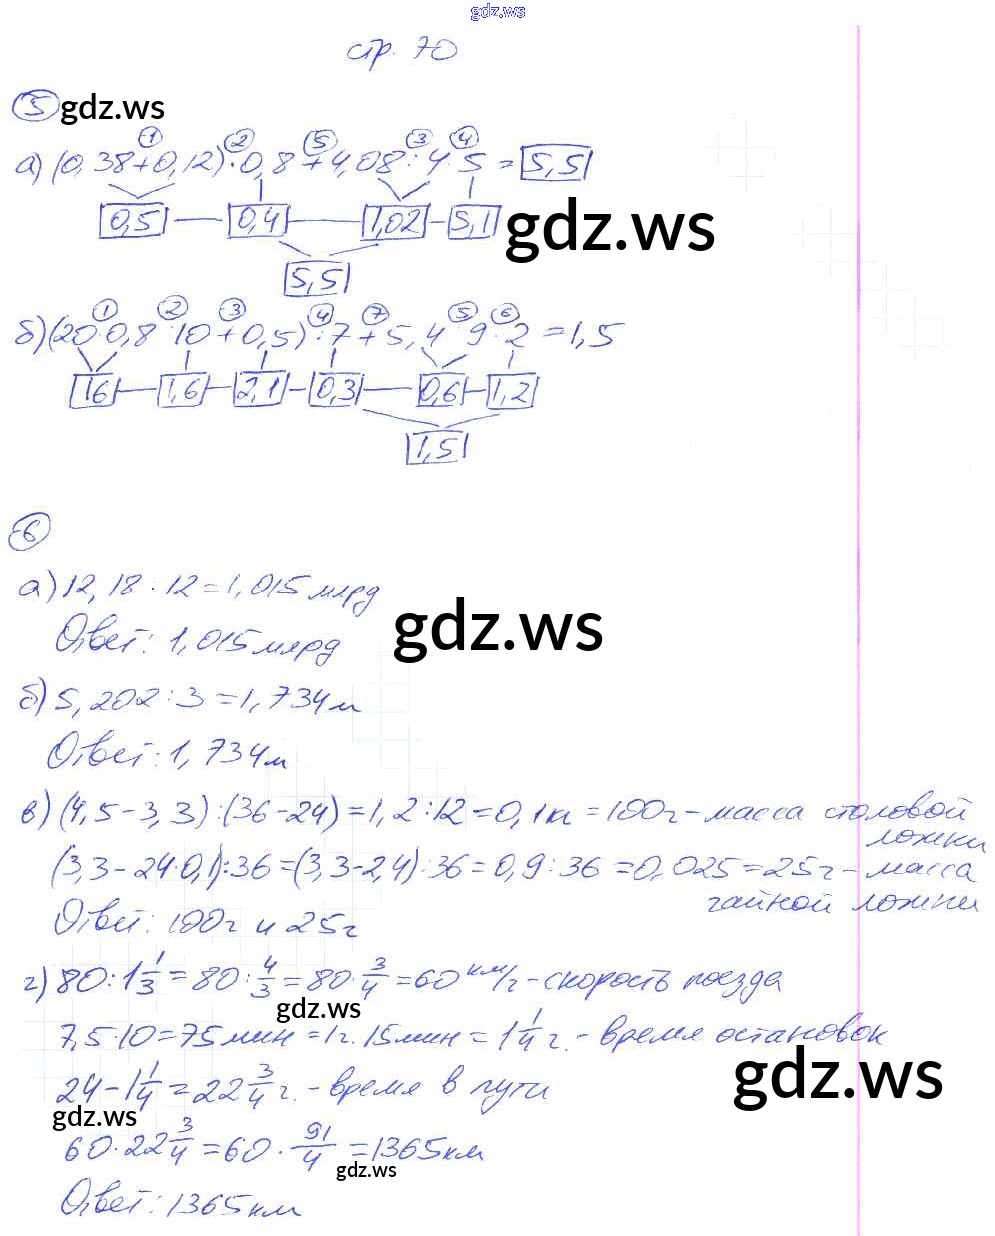 gdz.ws
стр. 70
5 gdz.ws
1 2 5 3 4
а) (0,38+0,12)·0,8+4,08:4·5=5,5
0,5 0,4 1,02 5,1 gdz.ws
5,5
1 2 3 4 7 5 6
б) (20·0,8:10+0,5):7+5,4:9·2=1,5
16 1,6 2,1 0,3 0,6 1,2
1,5
6
а) 12,18:12=1,015 млрд
Ответ: 1,015 млрд gdz.ws
б) 5,202:3=1,734 м
Ответ: 1,734 м
в) (4,5-3,3):(36-24)=1,2:12=0,1 кг=100 г - масса столовой
ложки
(3,3-24·0,1):36=(3,3-2,4):36=0,9:36=0,025=25 г - масса
чайной ложки
Ответ: 100 г и 25 г
г) 80:1 1/3=80:4/3=80·3/4=60 км/ч - скорость поезда
gdz.ws
7,5·10=75 мин=1 ч. 15 мин=1 1/4 ч. - время остановок
24-1 1/4=22 3/4 ч. - время в пути gdz.ws
gdz.ws
60·22 3/4=60·91/4=1365 км
gdz.ws
Ответ: 1365 км